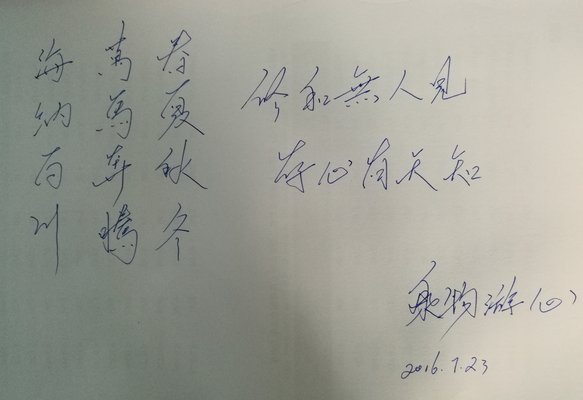 春夏秋冬
萬馬奔騰
海纳百川
修和無人見
存心有天知
乘物游心
2016.7.23